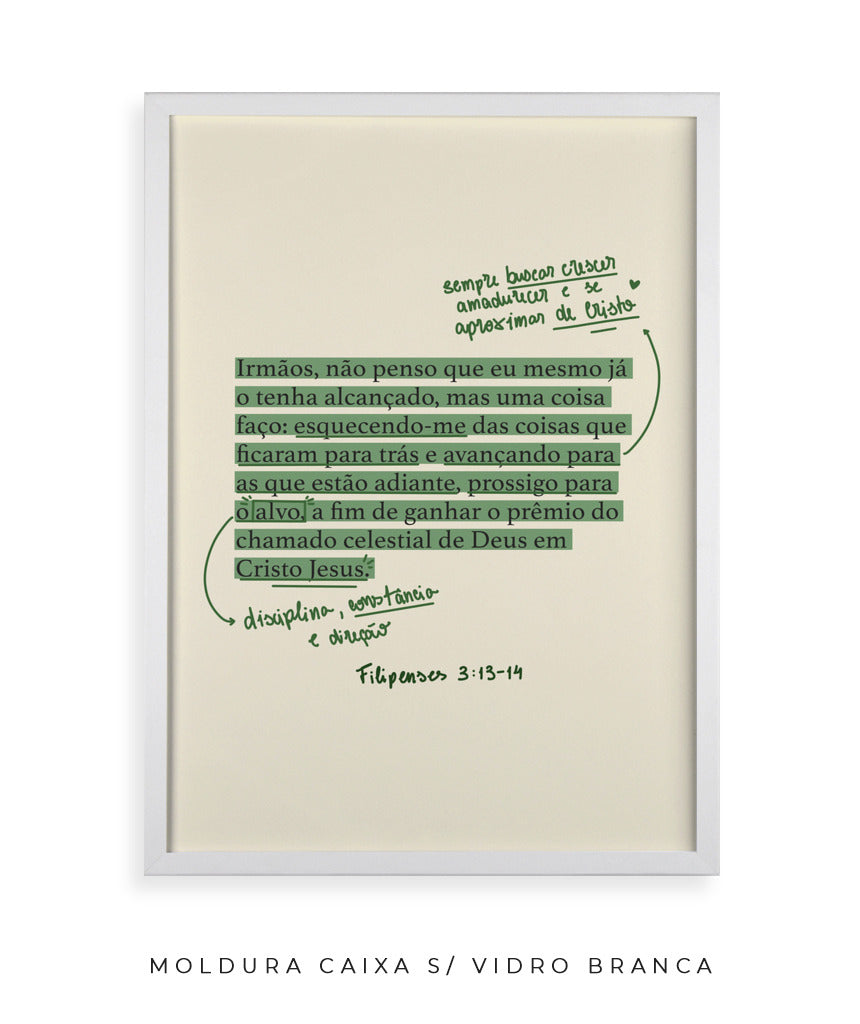 sempre buscar crescer
amadurecer e se
aproximar de Cristo
Irmãos, não penso que eu mesmo já
o tenha alcançado, mas uma coisa
faço: esquecendo-me das coisas que
ficaram para trás e avançando para
as que estão adiante, prossigo para
o alvo, a fim de ganhar o prêmio do
chamado celestial de Deus em
Cristo Jesus.
disciplina, constância
e direção
Filipenses 3:13-14
MOLDURA CAIXA S/ VIDRO BRANCA